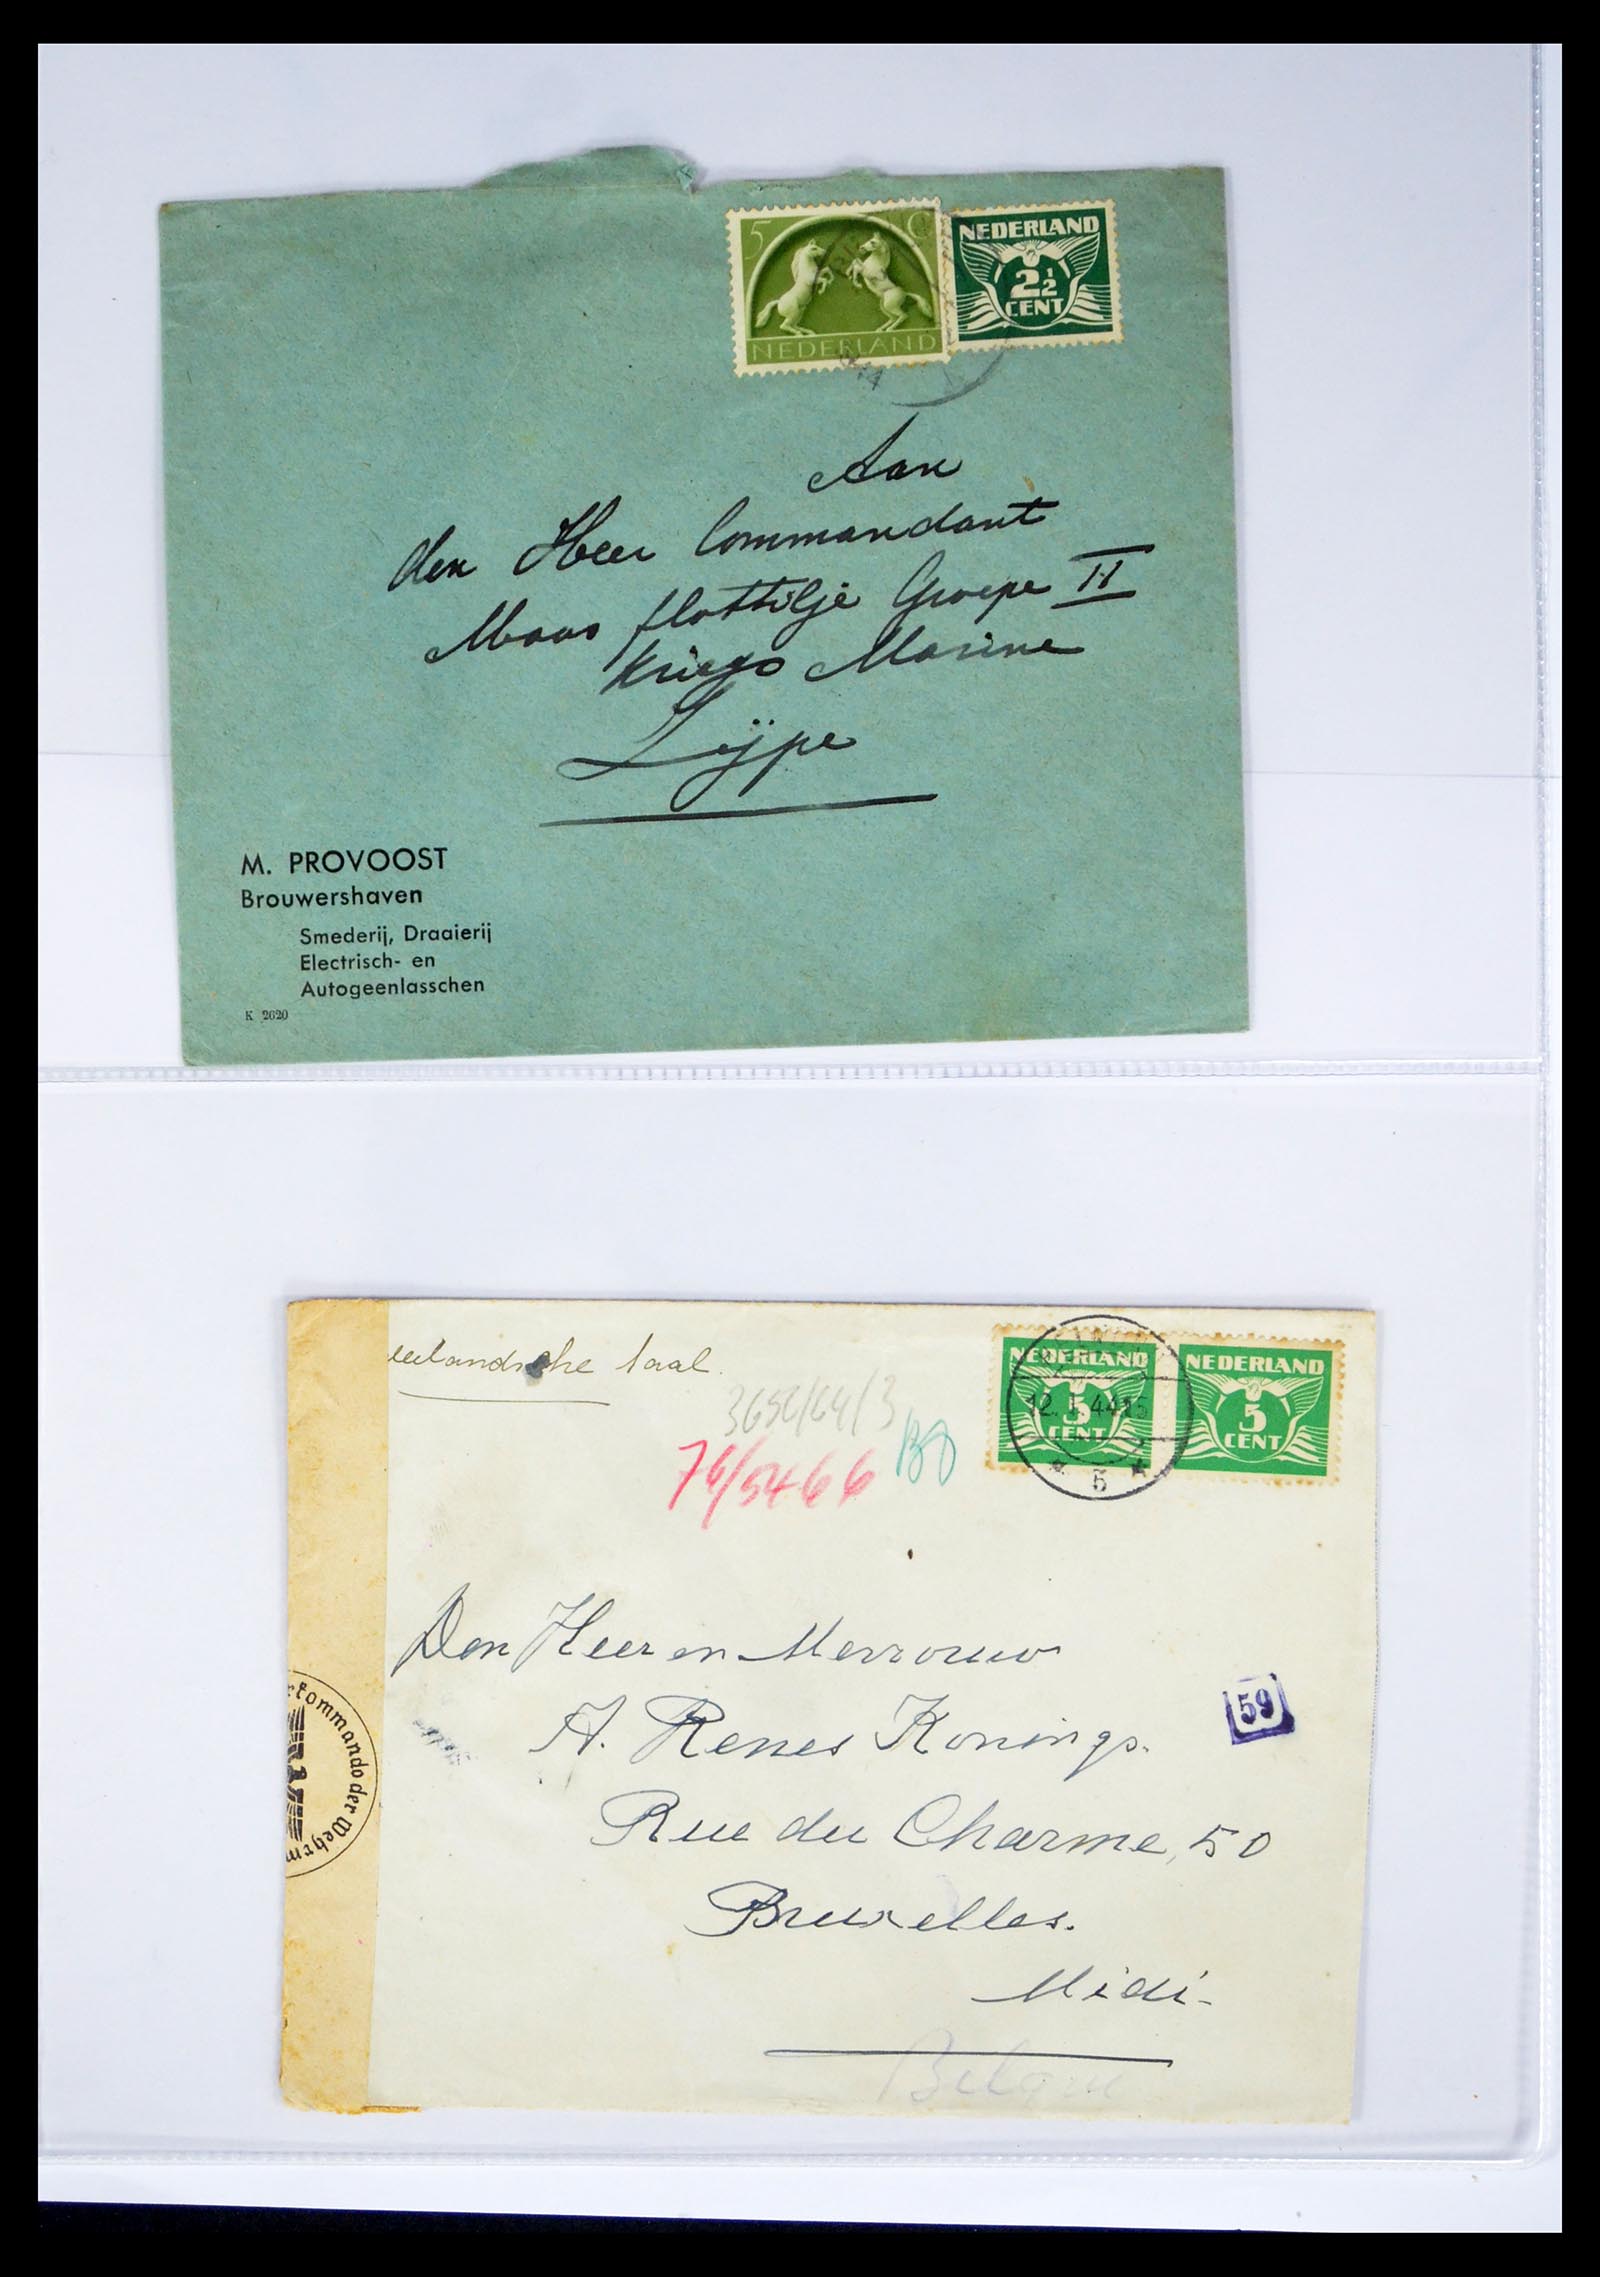 5 C
NEDERLAND
NEDERLAND
2½
CENT
44
Aan
den Heer Commandant
Maas flottilje Groepe II
Kriegs Marine
Zijpe
M. PROVOOST
Brouwershaven
Smederij, Draaierij
Electrisch- en
Autogeenlasschen
K 2620
landsche taal.
NEDERLAND
5
CENT
NEDERLAND
5
CENT
12. 1. 44 15
* 5 *
76/5466
Den Heer en Mevrouw
A. Renes Konings.
59
Rue du Charme, 50
Bruxelles.
Midi-
rkommando der Wehrm